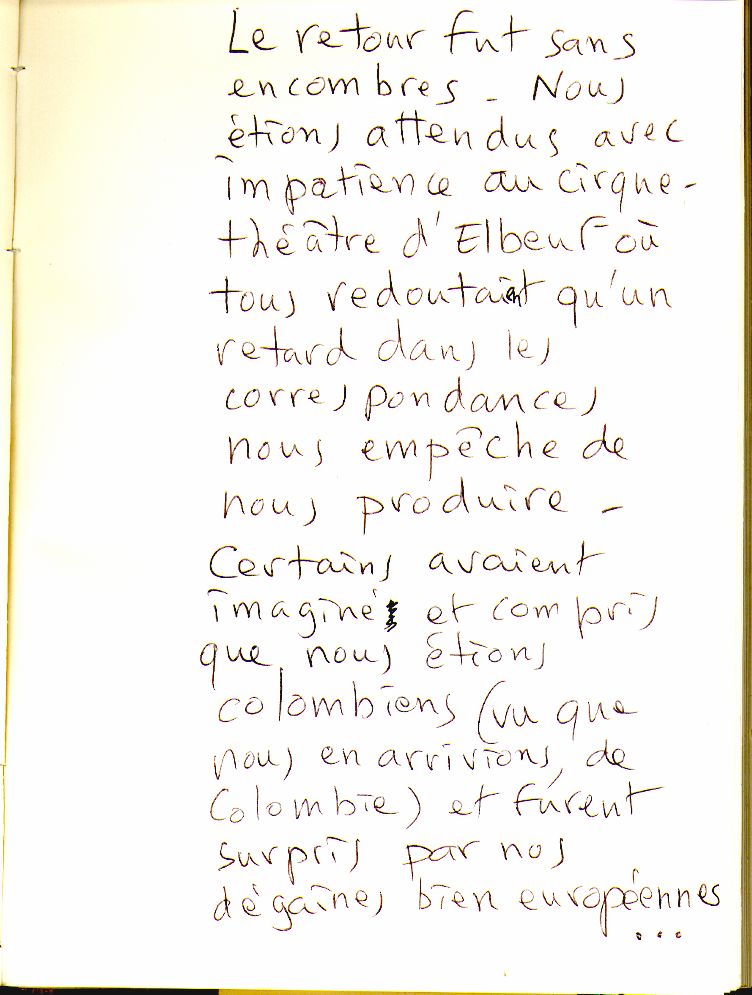 Le retour fut sans
encombres. Nous
étions attendus avec
impatience au cirque-
théâtre d'Elbeuf où
tous redoutaient qu'un
retard dans les
correspondances
nous empêche de
nous produire.
Certains avaient
imaginé et compris
que nous étions
colombiens (vu que
nous en arrivions, de
Colombie) et furent
surpris par nos
dégaines bien européennes
...